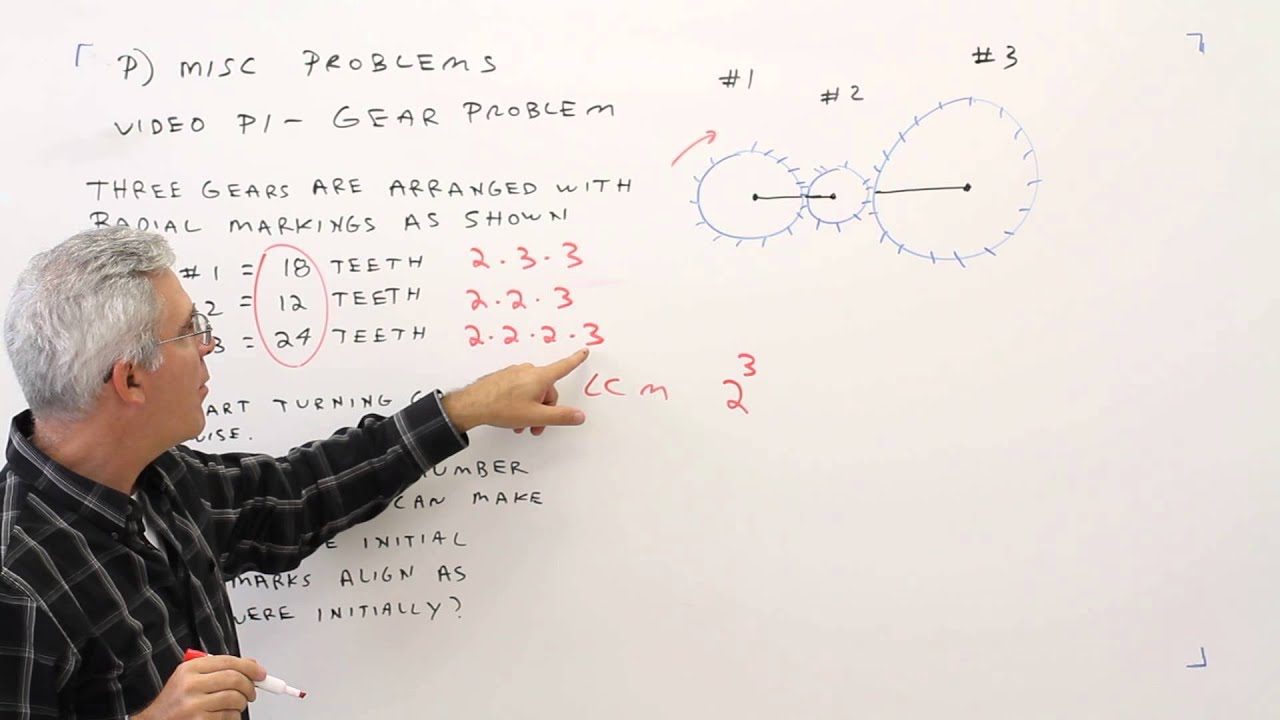 P) MISC PROBLEMS
VIDEO P1 - GEAR PROBLEM
THREE GEARS ARE ARRANGED WITH
RADIAL MARKINGS AS SHOWN
#1 = 18 TEETH 2·3·3
2 = 12 TEETH 2·2·3
3 = 24 TEETH 2·2·2·3
LCM 2³
TURNING
NUMBER
CAN MAKE
INITIAL
MARKS ALIGN AS
INITIALLY?
#1
#2
#3